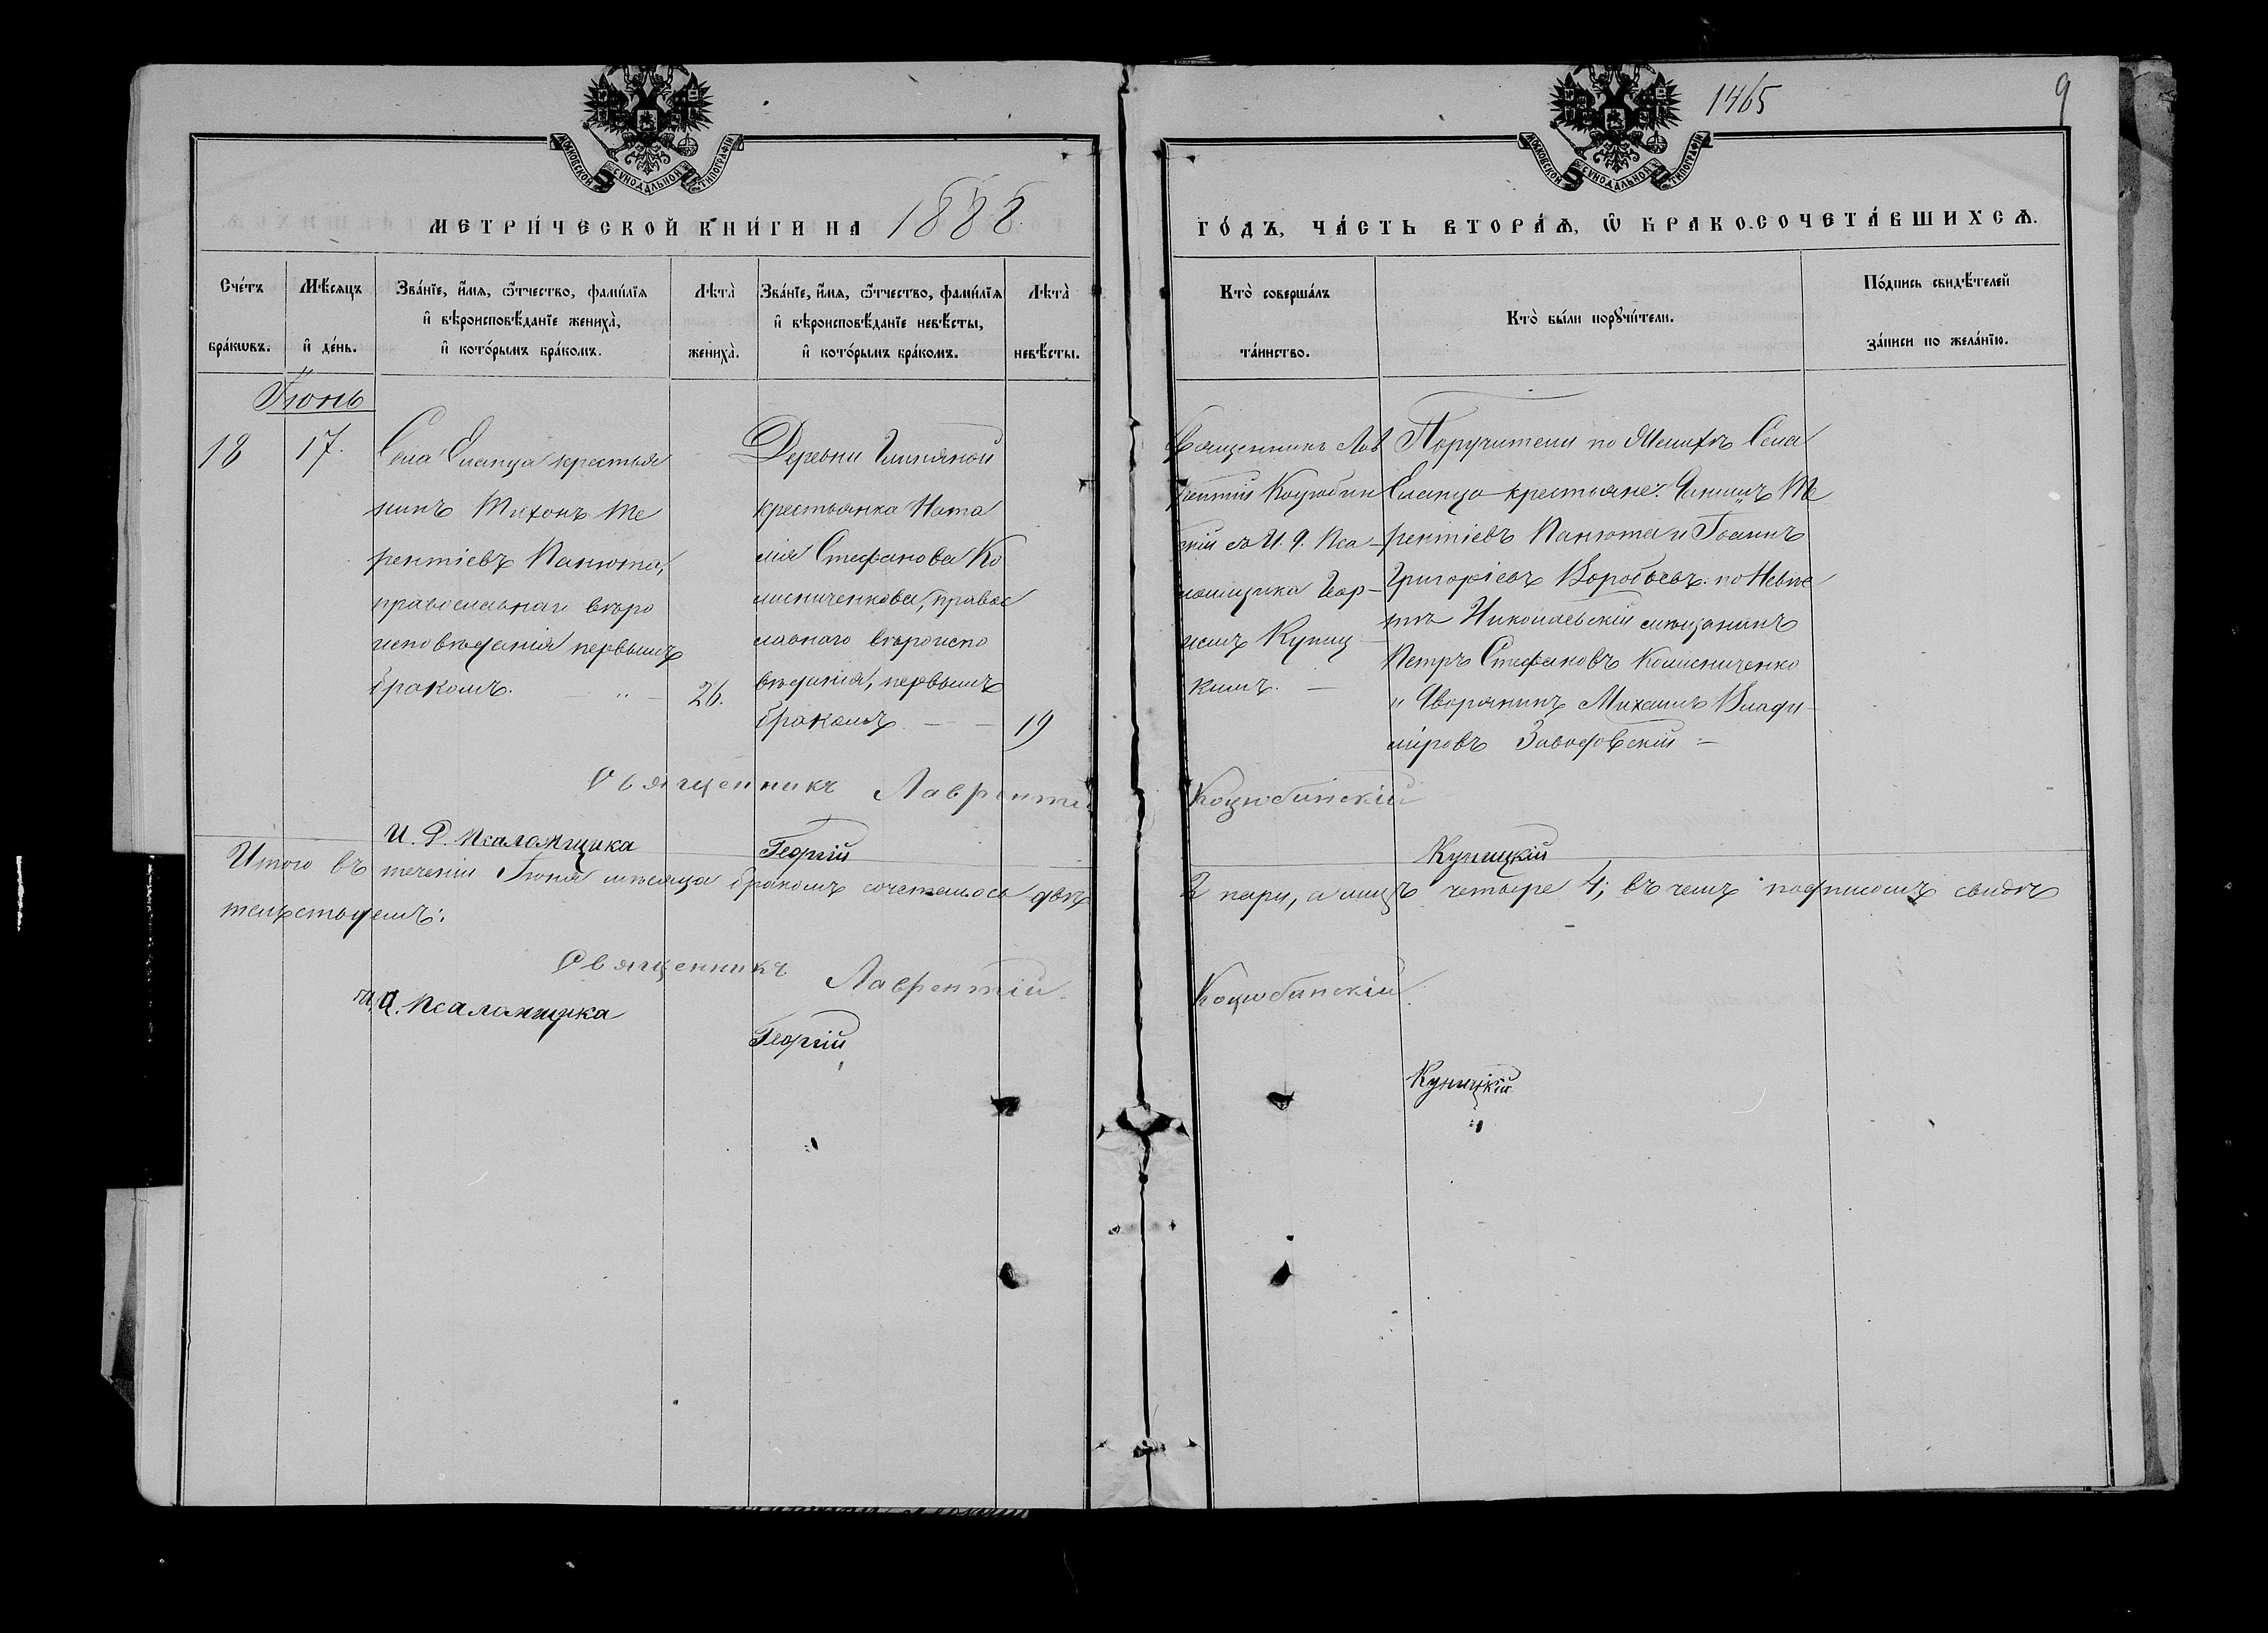 1465
9
МОСКОВСКОЙ СѴНОДАЛЬНОЙ ТИПОГРАФІИ
МОСКОВСКОЙ СѴНОДАЛЬНОЙ ТИПОГРАФІИ
МЕТРИ́ЧЕСКОЙ КНИ́ГИ НА 1888.
ГО́ДЪ, ЧА́СТЬ ВТОРА́Ѧ, Ѡ҆ БРАКОСОЧЕТА́ВШИХСѦ.
Сче́тъ
бра́кѡвъ.
Мѣ́сяцъ
и҆ де́нь.
Зва́нїе, и҆́мя, ѻ҆́тчество, фами́лїя
и҆ вѣроисповѣ́данїе жениха̀,
и҆ кото́рымъ бра́комъ.
Лѣта̀
жениха̀.
Зва́нїе, и҆́мя, ѻ҆́тчество, фами́лїя
и҆ вѣроисповѣ́данїе невѣ́сты,
и҆ кото́рымъ бра́комъ.
Лѣта̀
невѣ́сты.
Кто̀ соверша́лъ
та́инство.
Кто̀ бы́ли порꙋчи́тели.
По́дпись свидѣ́телей
за́писи по жела́нїю.
Іюнь
18
17.
Села Еланца крестья
нинъ Тихонъ Те
рентіевъ Панюта,
православнаго вѣро
исповѣданія первымъ
бракомъ.
26.
Деревни Глиняной
крестьянка Ната
лія Стефанова Ко
лисниченкова, правос
лавнаго вѣроиспо
вѣданія, первымъ
бракомъ
19
Священникъ Лав
рентій Коцюбин
скій съ И. д. Пса-
ломщика Геор-
гіемъ Куниц-
кимъ.
Поручители по Женихѣ Села
Еланца крестьяне: Даніилъ Те
рентіевъ Панюта и Іоаннъ
Григоріевъ Воробьевъ: по Невѣс
тѣ Николаевскій мѣщанинъ
Петръ Стефановъ Колисниченко
и Дворянинъ Михаилъ Влади-
міровъ Завадовскій
Священникъ Лаврентій Коцюбинскій
И. Д. Псаломщика Георгій Куницкій
Итого въ теченіи Іюня мѣсяца бракомъ сочеталось двѣ 2 пары, а лицъ четыре 4; въ чемъ подписомъ свидѣ
тельствуемъ:
Священникъ Лаврентій Коцюбинскій.
И. Д. Псаломщика Георгій Куницкій